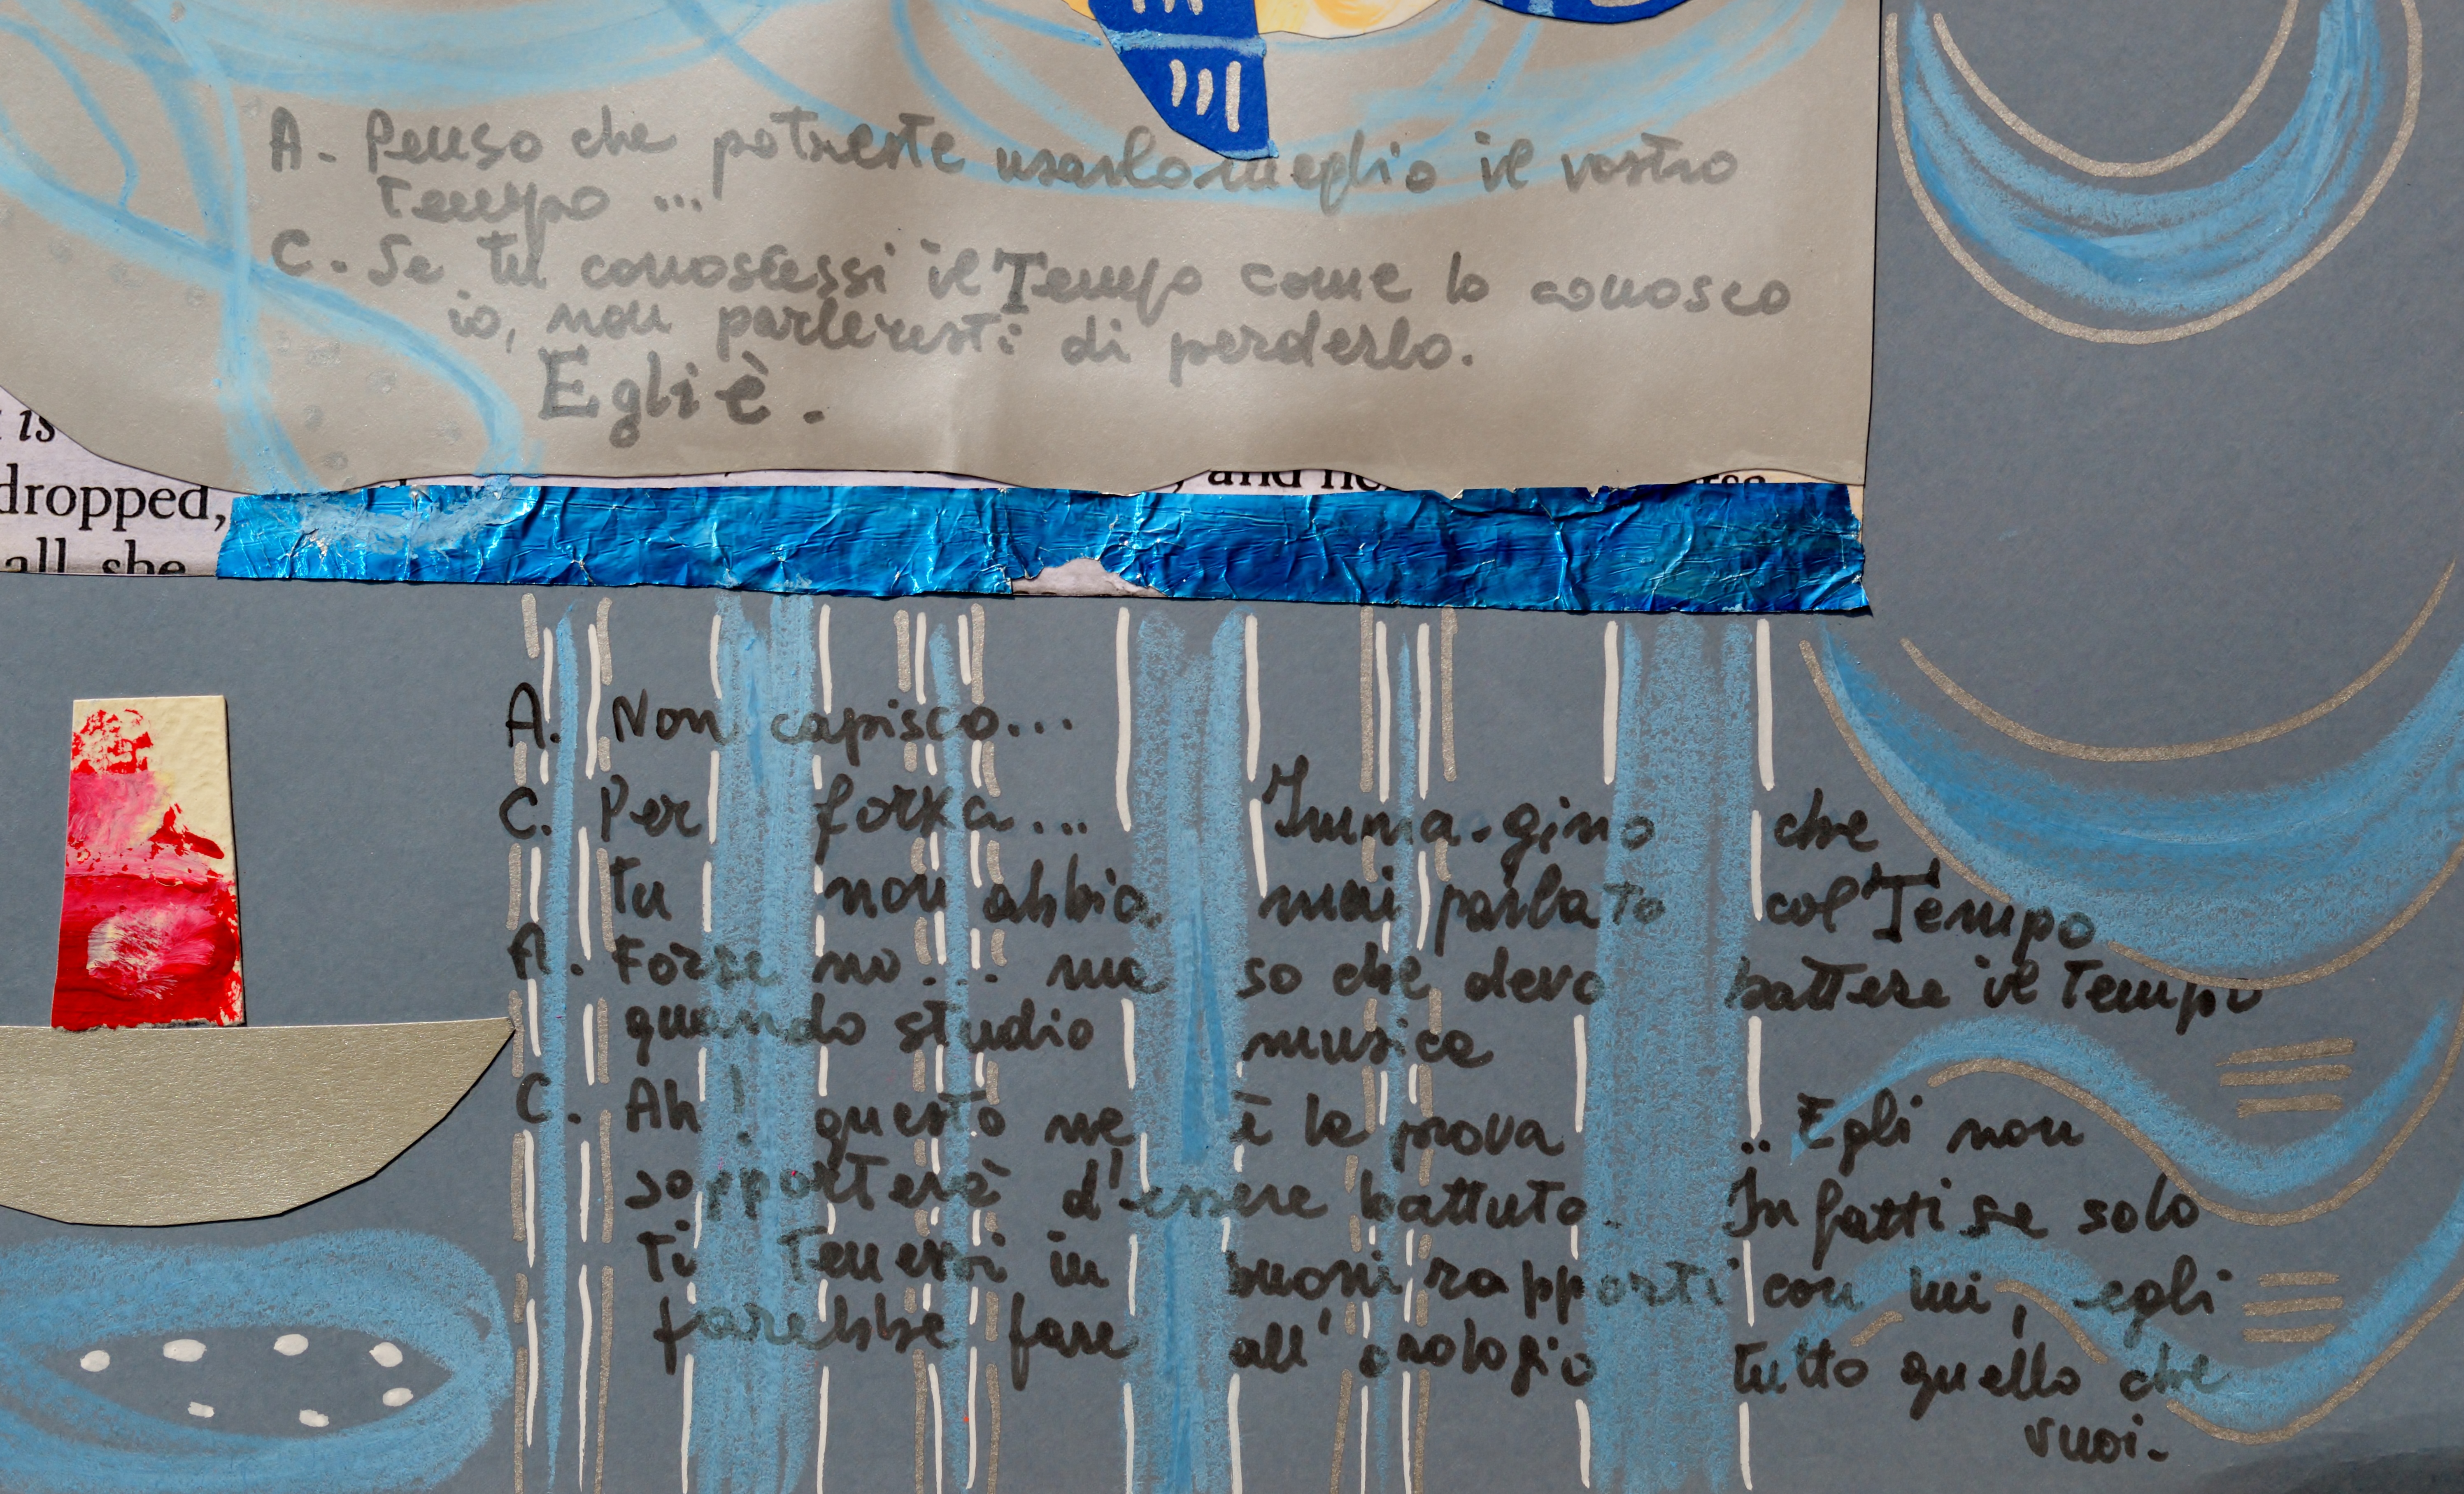 A. Penso che potreste usarlo meglio il vostro
Tempo ...
C. Se tu conoscessi il Tempo come lo conosco
io, non parleresti di perderlo.
Egli è.
is
dropped,
all she
, and he
A. Non capisco...
C. Per forza... Imma-gino che
tu non abbia mai parlato col Tempo
A. Forse no... ma so che devo battere il Tempo
quando studio musica
C. Ah! questo me è la prova .. Egli non
sopporterà d'essere battuto. Infatti se solo
ti tenessi in buoni rapporti con lui, egli
farebbe fare all'orologio tutto quello che
vuoi.